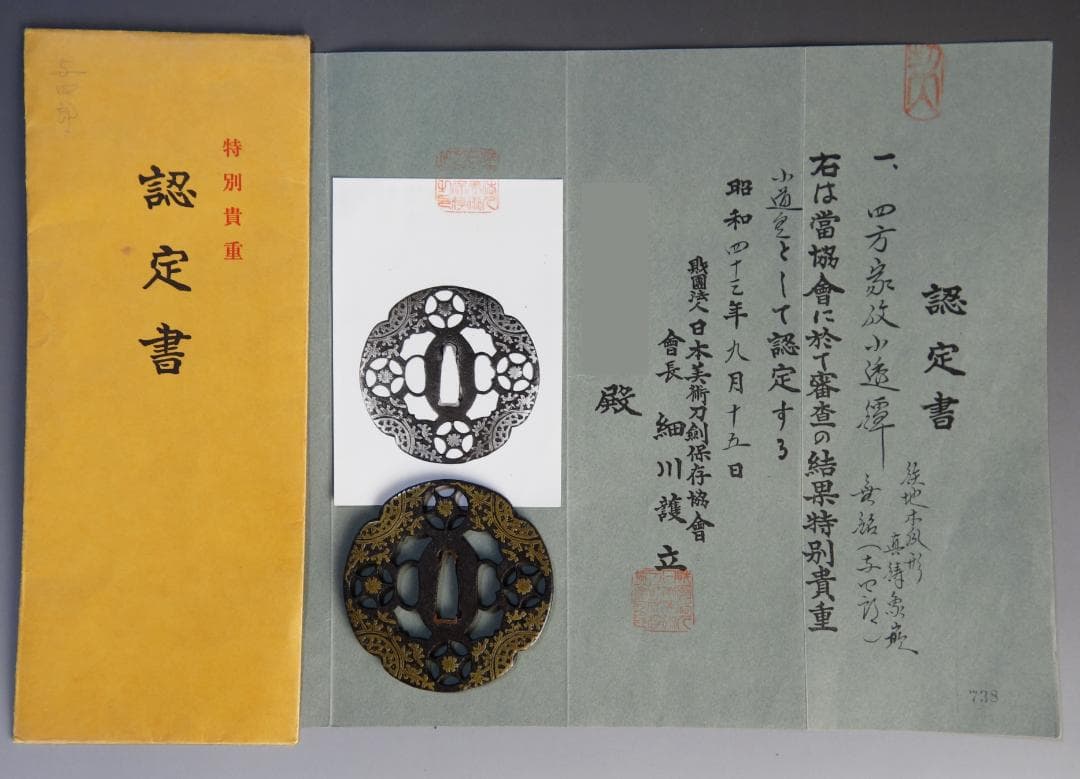 認定書
一、四方家紋小透鐔
鉄地木瓜形
真鍮象嵌
無銘(与四郎)
右は當協會に於て審査の結果特別貴重
小道具として認定する
昭和四十三年九月十五日
財團法人日本美術刀劍保存協會
會長 細川護立
殿
738
特別貴重
認定書
与四郎